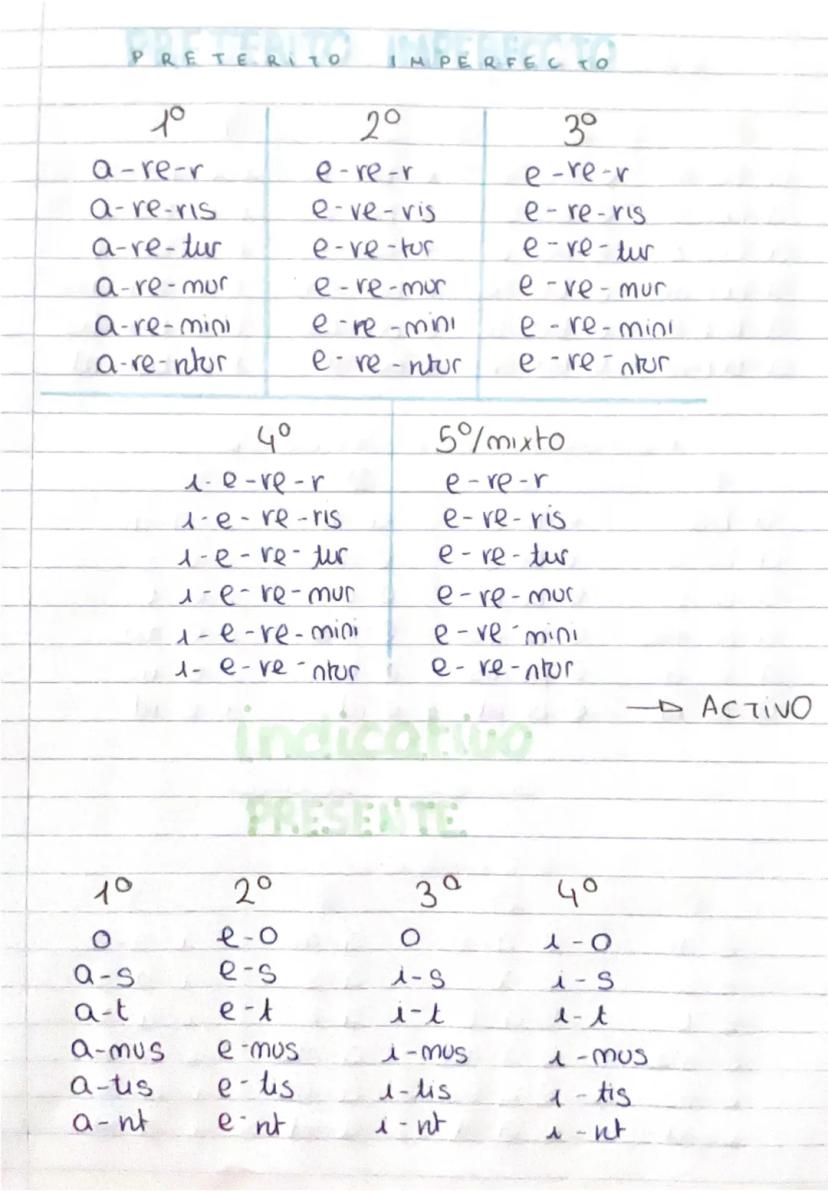 PRETERITO IMPERFECTO
1º 2º 3º
a-re-r e-re-r e-re-r
a-re-ris e-re-ris e-re-ris
a-re-tur e-re-tur e-re-tur
a-re-mur e-re-mur e-re-mur
a-re-mini e-re-mini e-re-mini
a-re-ntur e-re-ntur e-re-ntur
4º 5º/mixto
i-e-re-r e-re-r
i-e-re-ris e-re-ris
i-e-re-tur e-re-tur
i-e-re-mur e-re-mur
i-e-re-mini e-re-mini
i-e-re-ntur e-re-ntur
→ ACTIVO
indicativo
PRESENTE
1º 2º 3ª 4º
o e-o o i-o
a-s e-s i-s i-s
a-t e-t i-t i-t
a-mus e-mus i-mus i-mus
a-tis e-tis i-tis i-tis
a-nt e-nt i-nt i-nt